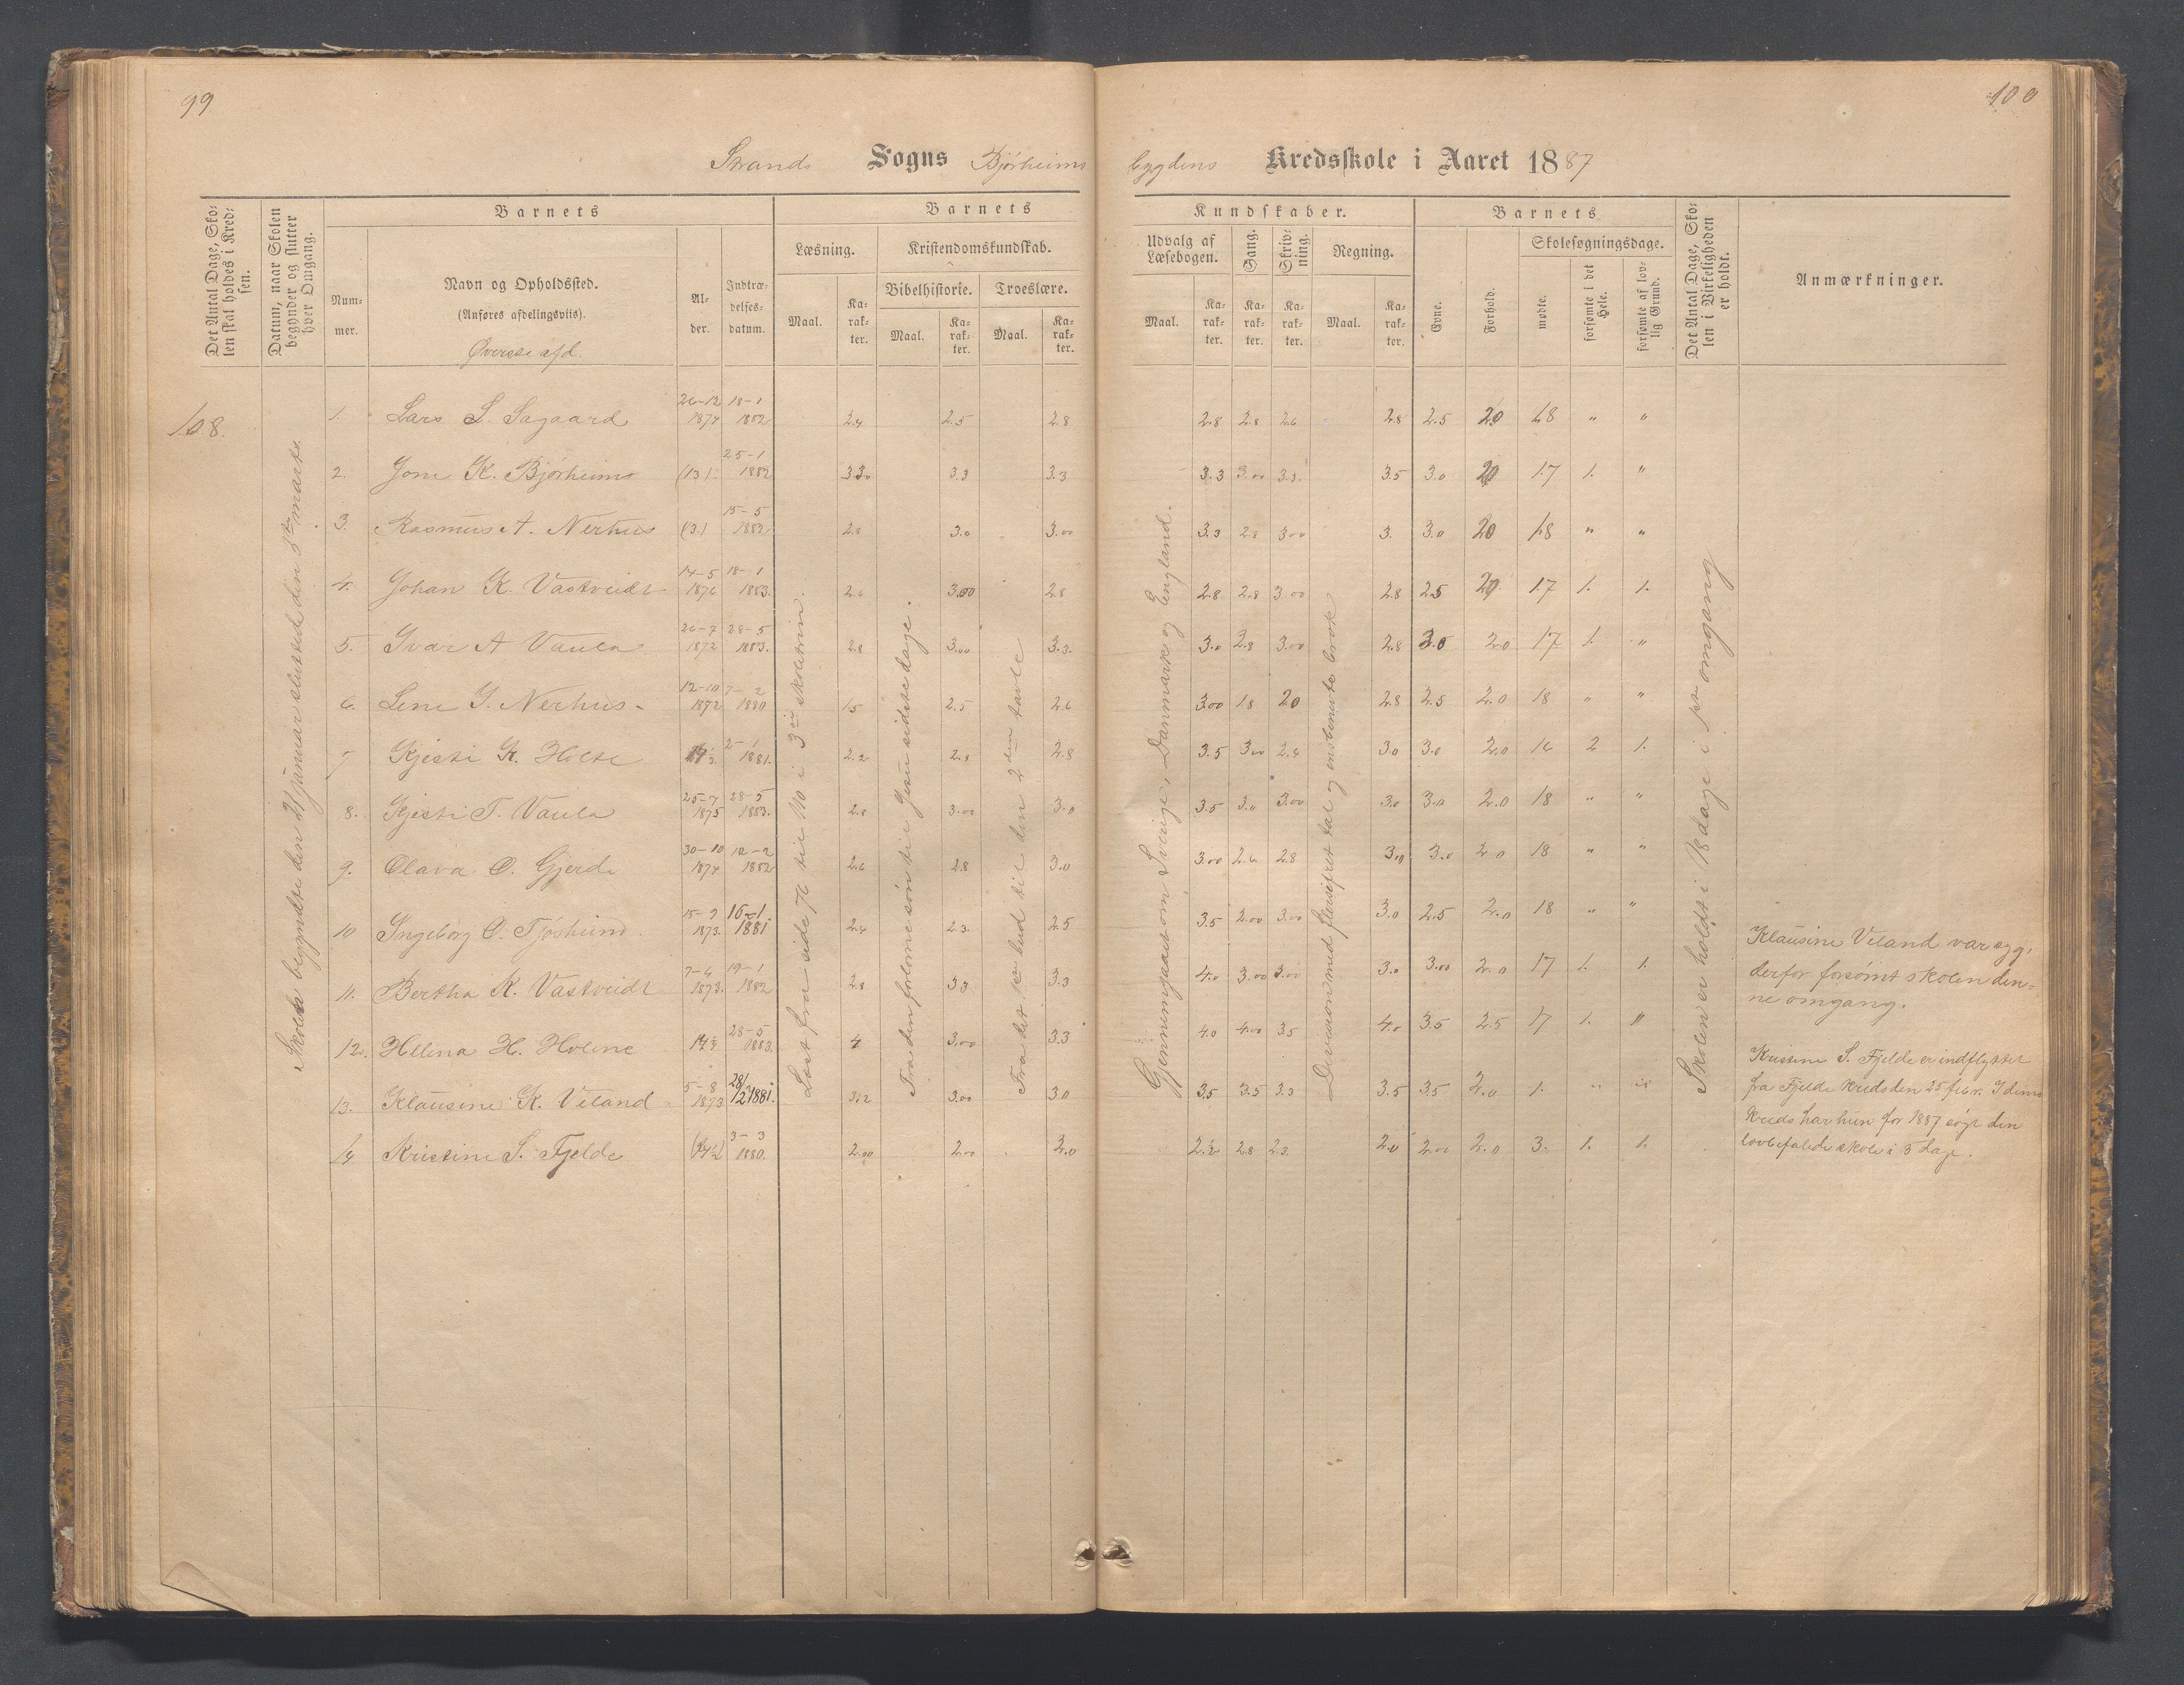 99
100
Strands Sogns Bjørheims
bygdens Kredsskole i Aaret 1887
Det Antal Dage, Skolen skal holdes i Kredsen.
Datum, naar Skolen begynder og slutter hver Omgang.
Barnets
Nummer.
Navn og Opholdssted.
(Anføres afdelingsviis).
Øverste afd.
Alder.
Indtrædelsesdatum.
Barnets
Læsning.
Kristendomskundskab.
Bibelhistorie.
Troeslære.
Maal.
Karakter.
Maal.
Karakter.
Maal.
Karakter.
Kundskaber.
Udvalg af Læsebogen.
Sang.
Skrivning.
Regning.
Maal.
Karakter.
Karakter.
Karakter.
Maal.
Karakter.
Barnets
Evne.
Forhold.
Skolesøgningsdage.
mødte.
forsømte i det Hele.
forsømte af lovlig Grund.
Det Antal Dage, Skolen i Virkeligheden er holdt.
Anmærkninger.
108.
Skolen begyndte den 21 januar slutted den 8de marts.
Læst fra side 76 til 110 i 3die skoletrin.
Fra den forlorne søn til Jesu sidste dage.
Fra det 1ste bud til den 2den tavle
Gjennemgaaet om Sverige, Danmark og England.
Division med flersifret tal og ensbenævnte brøk
Skolen er holdt i 18 dage i 1ste omgang
1. Lars S. Sagaard 26-12 1874 18-1 1882 2.4 2.5 2.8 2.8 2.8 2.6 2.8 2.5 20 18 " "
2. Jone K. Bjørheims (13). 25-1 1882 3.30 3.3 3.3 3.3 3.00 3.3. 3.5 3.0 20 17 1. "
3. Rasmus A. Nerhus (13.) 15-5 1882 2.8 3.0 3.00 3.3 2.8 3.00 3. 3.0 20 18 " "
4. Johan K. Vastveidt 14-5 1876 18-1 1883. 2.6 3.00 2.8 2.8 2.8 3.00 2.8 2.5 20 17 1. 1.
5. Ivar A Vaula 26-7 1872 28-5 1883. 2.8 3.00 3.3. 3.0 2.8 3.00 2.8 3.0 2.0 17 1. "
6. Lene J. Nerhus- 12-10 1872 7-2 1880 15 2.5 2.6 3.00 18 20 2.8 2.5 2.0 18 " "
7 Kjesti K. Holte 2-1 1881. 2.2 2.8 2.8 3.5 3.00 2.4 3.0 3.0 2.0 16 2 1.
8. Kjesti T. Vaula 25-7 1875 28-5 1883. 2.8 3.00 3.0 3.5 3.0 3.00 3.0 3.0 2.0 18 " "
9. Olava O. Gjerde 30-10 1874 12-2 1882 2.6 2.8 3.0 3.00 2.6 2.8 3.0 3.0 2.0 18 " "
10 Ingeborg O. Tjøstheim 15-9 1873. 16-1. 1881 2.4 2.3. 2.5 3.5 2.00 3.00 3.0 2.5 2.0 18 " "
11. Bertha K. Vastveidt 7-6 1873. 19-1 1882 2.8 3.3 3.3 4.0 3.00 3.00 3.0 3.00 2.0 17 1. 1.
12. Hellena H. Holene 28-5 1883. 4 3.00 3.3 4.0 4.00 3.5 4.0 3.5 2.5 17 1. "
13. Klausine K. Veland 5-8 1873 28/12 1881. 3.2 3.00 3.0 3.5 3.5 3.3 3.5 3.5 2.0 1. " "
14 Kristine S. Fjelde 3-3 1880. 2.00 2.00 2.0 2.2 2.8 2.3. 2.0 2.00 2.0 3. 1. 1.
Klausine Veland var syg,
derfor forsømt skolen den=
ne omgang.
Kristine S. Fjelde er indflyttet
fra Fjelde kreds den 25 febr. I denne
kreds har hun for 1887 søgt den
lovbefalede skole i 3 dage.